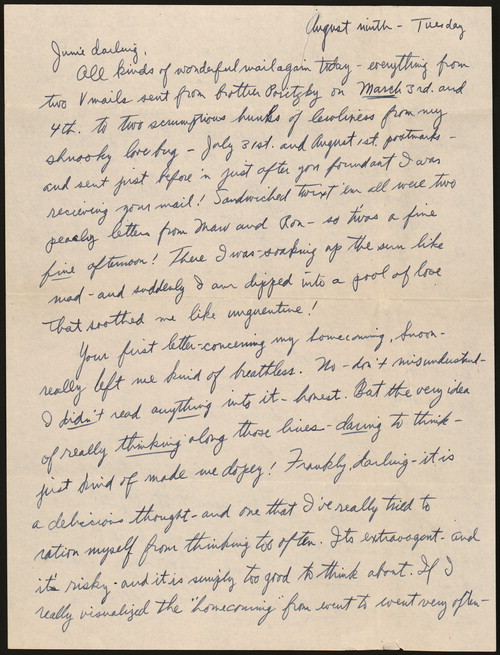 August ninth - Tuesday
Junie darling,
All kinds of wonderful mail again today - everything from
two V mails sent from brother Poritzky on March 3rd. and
4th. to two scrumptious hunks of loveliness from my
shnooky love bug - July 31st. and August 1st. postmarks -
and sent just before 'n just after you found out I was
recieving your mail! Sandwiched twixt 'em all were two
peachy letters from Maw and Ron - so twas a fine
fine afternoon! There I was - soaking up the sun like
mad - and suddenly I am dipped into a pool of love
that soothed me like unguentine!
Your first letter - concerning my homecoming, Snoon -
really left me kind of breathless. No - don't misunderstand -
I didn't read anything into it - honest. But the very idea
of really thinking along those lines - daring to think -
just kind of made me dopey! Frankly, darling - it is
a delicious thought - and one that I've really tried to
ration myself from thinking too often. Its extravagent - and
it's risky - and it is simply too good to think about. If I
really visualized the "homecoming" from event to event very often -